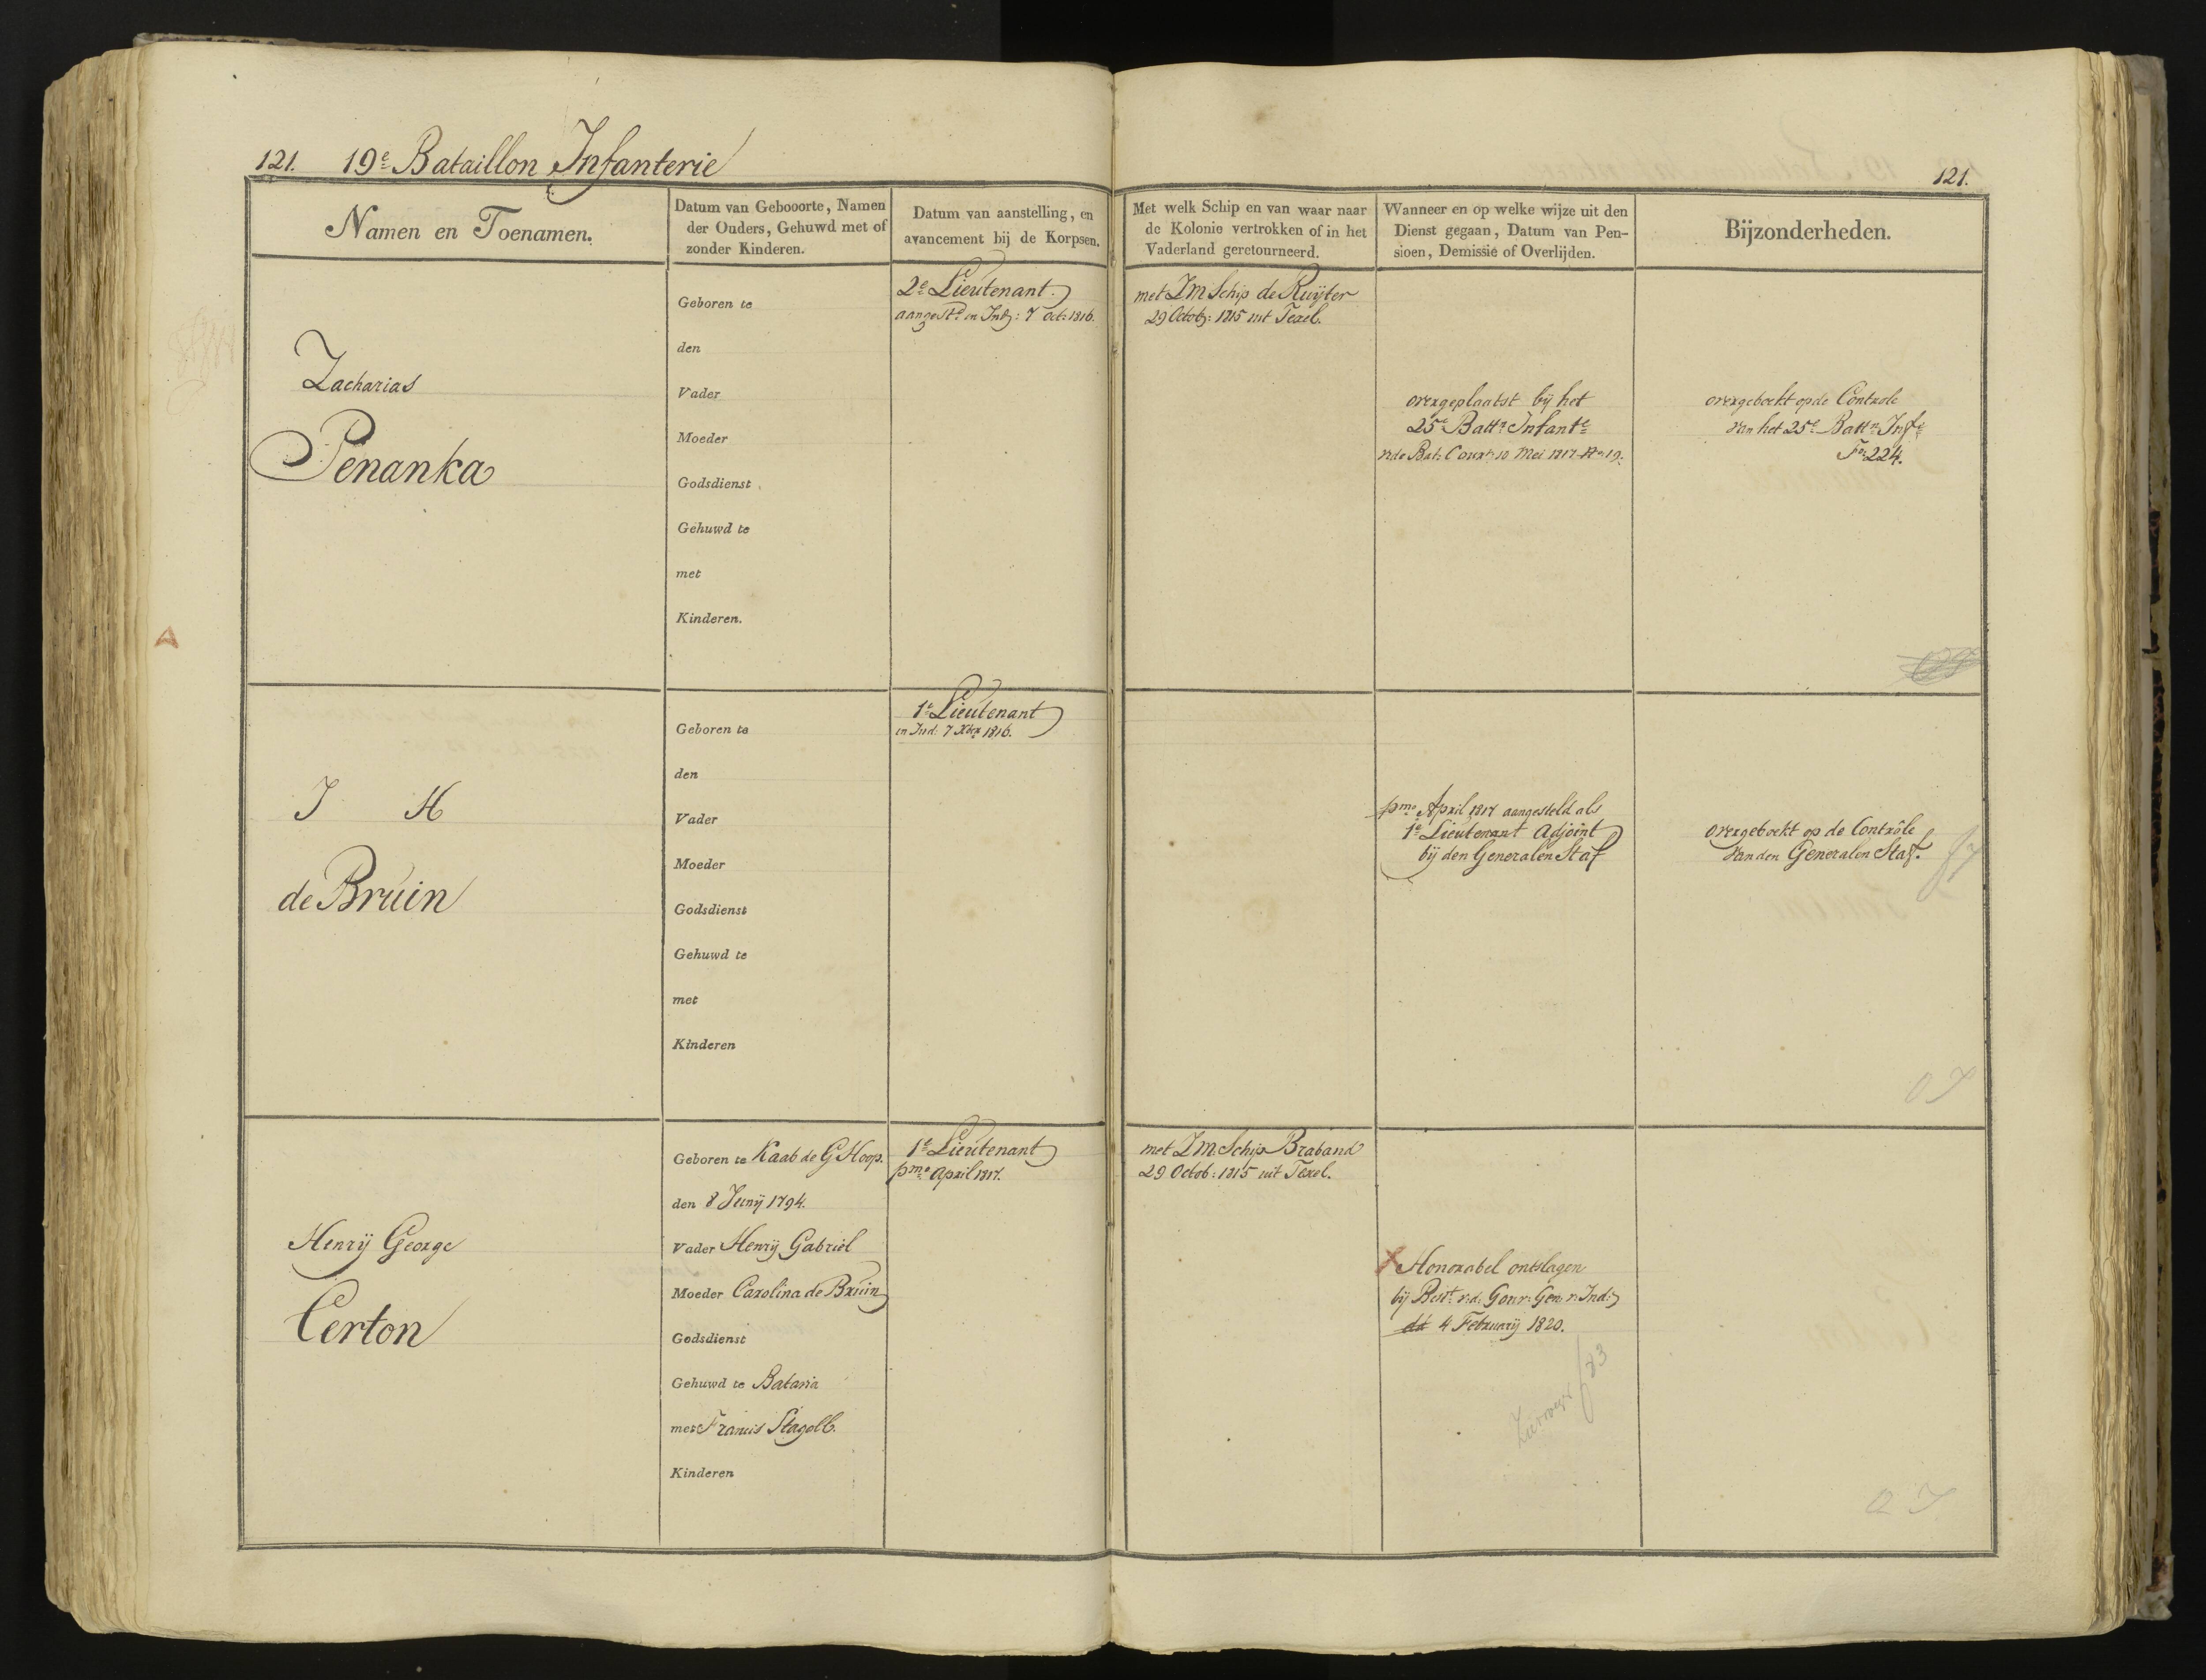 121. 19e Bataillon Infanterie
121.
Namen en Toenamen.
Datum van Gebooorte, Namen
der Ouders, Gehuwd met of
zonder Kinderen.
Datum van aanstelling, en
avancement bij de Korpsen.
Met welk Schip en van waar naar
de Kolonie vertrokken of in het
Vaderland geretourneerd.
Wanneer en op welke wijze uit den
Dienst gegaan, Datum van Pen-
sioen, Demissie of Overlijden.
Bijzonderheden.
Zacharias
Penanka
Geboren te
den
Vader
Moeder
Godsdienst
Gehuwd te
met
Kinderen.
2e Lieutenant.
aangestd in Ind: 7 Oct: 1816.
met ZM Schip de Ruijter
29 Octob: 1815 uit Texel.
overgeplaatst bij het
25e Battn Infante
vide Bat: Cour: 10 Mei 1817 No 19.
overgeboekt op de Controle
van het 25e Battn Infe
Fo 224.
J H
de Bruin
Geboren te
den
Vader
Moeder
Godsdienst
Gehuwd te
met
Kinderen
1e Lieutenant
in Ind: 7 Xber 1816.
pmo April 1817 aangesteld als
1e Lieutenant Adjoint
bij den Generalen Staf
overgeboekt op de Contrôle
van den Generalen Staf.
Henrij George
Certon
Geboren te Kaab de G Hoop.
den 8 Junij 1794.
Vader Henrij Gabriel
Moeder Carolina de Bruin
Godsdienst
Gehuwd te Batavia
met Francis Stagoll.
Kinderen
1e Lieutenant
pmo April 1817.
met ZM Schip Braband
29 Octob: 1815 uit Texel.
Honorabel ontslagen
bij Best v: d: Gouv: Gen: v: Ind:
dd 4 Februarij 1820.